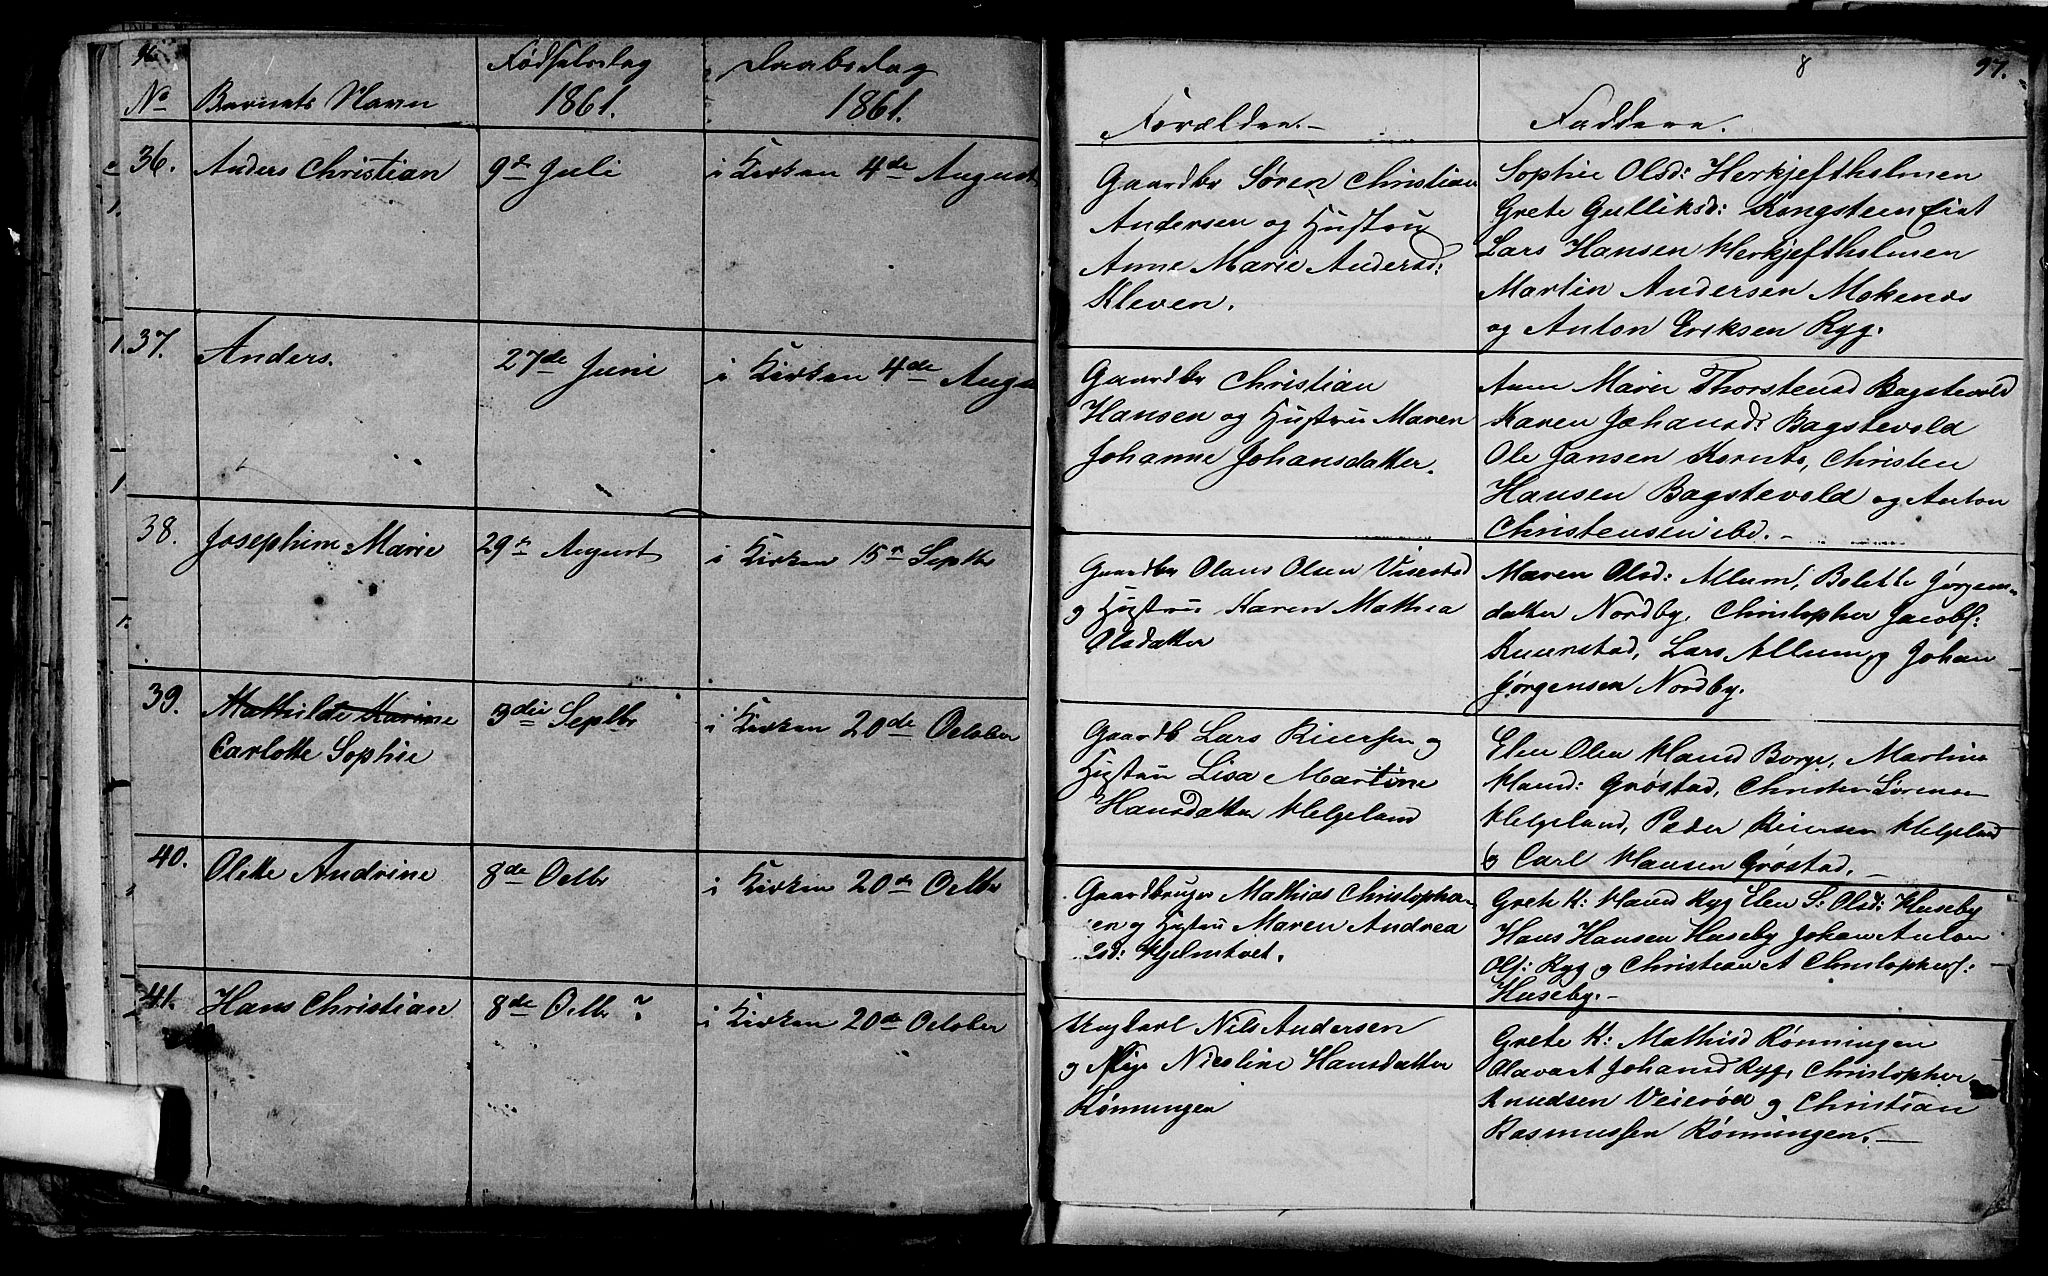 96.
Fødselsdag Daabsdag
No Barnets Navn 1861. 1861.
36. Anders Christian 9de Juli i Kirken 4de August
37. Anders. 27de Juni i Kirken 4de Augu
38. Josephine Marie 29de August i Kirken 15de Septbr
39. Mathilde Karine 3die Septbr i Kirken 20de October
Carlotte Sophie
40. Olette Andrine 8de Octbr i Kirken 20de Octbr
41. Hans Christian 8de Octbr ? i Kirken 20de October
8 97.
Forældre.- Faddere.
Gaardbr Søren Christian
Andersen og Hustru
Anne Marie Andersd:
Kleven.
Sophie Olsd: Herkjeftholmen
Grete Gulliksd: Kongsteen
Lars Hansen Herkjeftholmen
Martin Andersen Mekenæs
og Anton Eriksen Ryg.
Gaardbr Christian
Hansen og Hustru Maren
Johanne Johansdatter.
Anne Marie Thorstensd Bagstevold
Karen Johansd: Bagstevold
Ole Jansen Kornts, Christen
Hansen Bagstevold og Anton
Christensen ibd.-
Gaardbr Olaus Olsen Visestad
og Hustru Karen Mathea
Olsdatter
Maren Olsd: Allum, Bolette Jørgens-
datter Nordby, Christopher Jacobs:
Kuerstad, Lars Allum og Johan
Jørgensen Nordby.
Gaardb Lars Riiersen og
Hustru Lisa Martine
Hansdatter Helgeland
Elen Olea Hansd Borge, Martine
Hansd: Grøstad, Christen Sørensen
Helgeland, Peder Riiersen Helgeland
og Carl Hansen Grøstad.-
Gaardbruger Mathias Christophers-
en og Hustru Maren Andrea
Hjelmtvet.
Grete K: Hansd Ryg Elen S: Olsd: Huseby
Hans Hansen Huseby Johan Anton
Ols: Ryg og Christian A Christophers:
Huseby.-
Ungkarl Nils Andersen
og Pige Nicoline Hansdatter
Rønningen
Grete K: Mathisd Rønningen
Olavart Johansd Ryg, Christopher
Knudsen Veierød og Christian
Rasmussen Rønningen.-